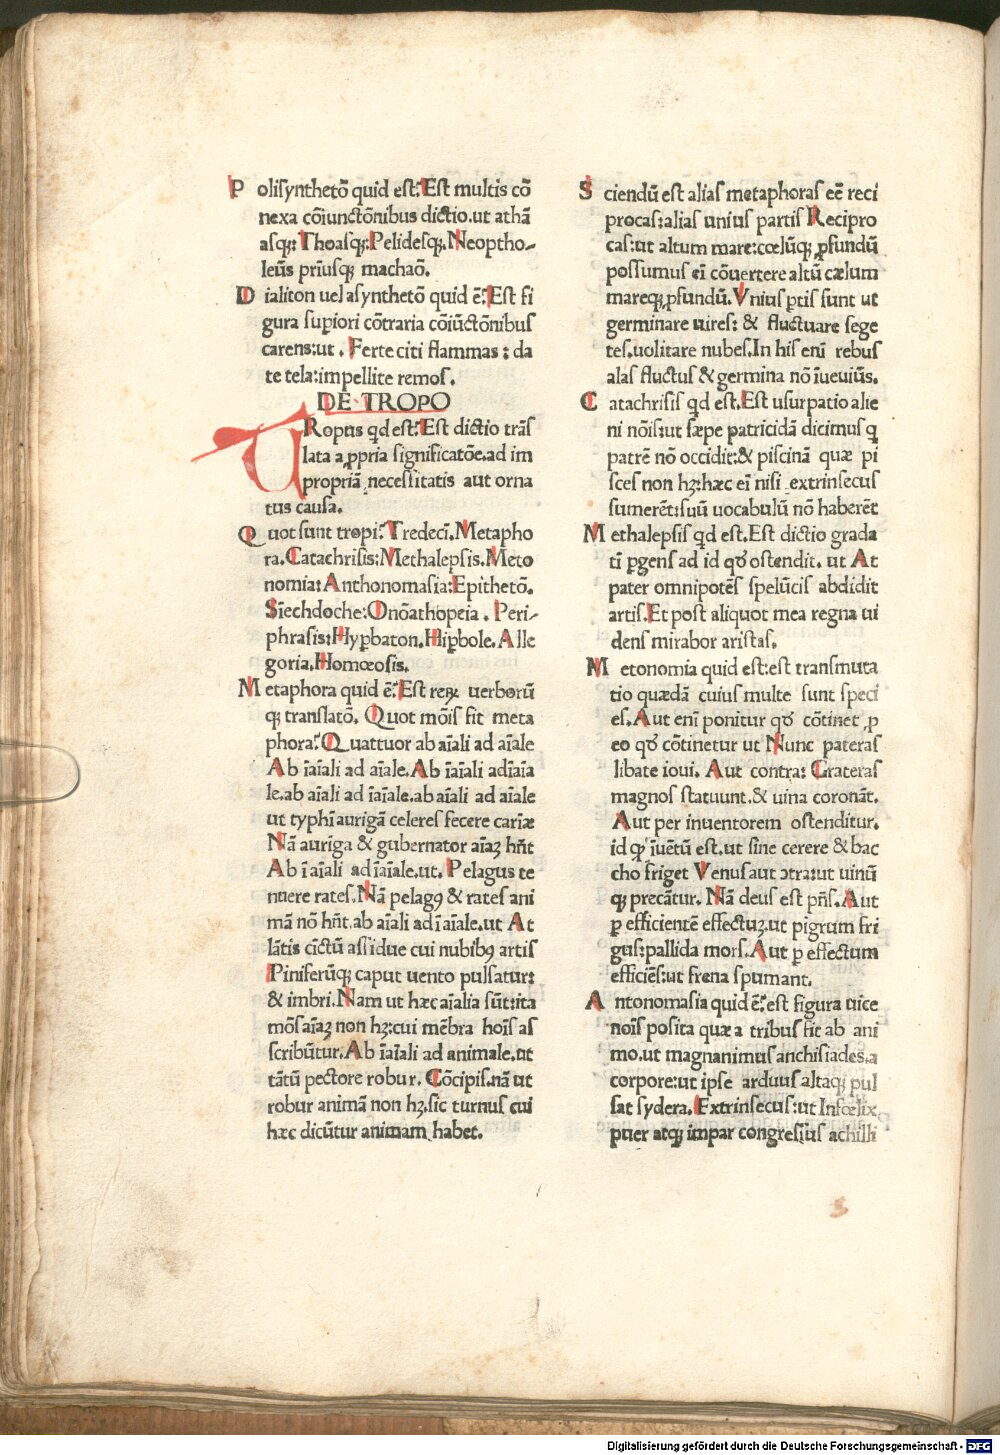 Poliſynthetō quid eſt? Eſt multis cō
nexa cōiunctōnibus dictio.ut athā
aſqꝫ: Thoaſqꝫ: Pelideſqꝫ. Neoptho-
leūs prīuſqꝫ machaō.
Dialiton uel aſynthetō quid ē? Eſt fi
gura suꝑiori cōtraria cōiūctōnibus
carens:ut . Ferte citi flammas : da
te tela:impellite remoſ.
DE TROPO
TRopus qd eſt? Eſt dictio trāſ
lata a ꝓpria ſignificatōe.ad im
propriā necessitatis aut orna
tus cauſa.
Quot ſunt tropi? Tredecī. Metapho
ra. Catachriſis: Methalepſis. Meto
nomia: Anthonomaſia: Epithetō.
Sīechdoche: Onōathopeia . Peri-
phraſis: Hyꝑbaton. Hiꝑbole. Alle
goria. Homœoſis.
Metaphora quid ē? Eſt reꝝ uerborū
qꝫ translatō. Quot mōiſ fit meta
phora? Quattuor ab aīali ad aīale
Ab īaīali ad aīale. Ab īaīali adīaīa
le.ab aīali ad īaīale.ab aīali ad aīale
ut typhī aurigā celereſ fecere carīæ
Nā auriga & gubernator aīaꝫ hñt
Ab īaīali ad īaīale.ut. Pelagus te
nuere rateſ. Nā pelagꝯ & rateſ ani
mā nō hñt.ab aīali ad īaīale.ut At
lātis cīctū aſſidue cui nubibꝯ artiſ
Piniferūqꝫ caput uento pulſatur:
& imbri. Nam ut hæc aīalia ſūt:ita
mōſ aīaꝫ non hꝫ:cui mēbra hoīſ aſ
ſcribūtur. Ab īaīali ad animale.ut
tātū pectore robur. Cōcipiſ.nā ut
robur animā non hꝫ.ſic turnus cui
hæc dicūtur animam habet.
Sciendū eſt aliaſ metaphoraſ eē reci
procaſ:aliaſ unius partiſ Recipro
caſ:ut altum mare:cœlūqꝫ ꝓfundū
poſſumuſ eī cōuertere altū cælum
mareqꝫ ꝓfundū. Vnius ꝑtiſ ſunt ut
germinare uireſ: & fluctuare ſege
teſ.uolitare nubeſ. In hiſ enī rebuſ
alaſ fluctuſ & germina nō īueuiūſ.
Catachriſiſ qd eſt. Eſt uſurpatio alie
ni nōiſ:ut ſæpe patricidā dicimuſ q
patrē nō occidit:& piſcinā quæ pi
ſceſ non hꝫ:hæc eī niſi extrinſecuſ
ſumerēt:ſuū uocabulū nō haberēt
Methalepſiſ qd eſt. Eſt dictio grada
tī ꝑgenſ ad id qđ oſtendit. ut At
pater omnipotēſ ſpelūciſ abdidit
artiſ. Et poſt aliquot mea regna ui
denſ mirabor ariſtaſ.
Metonomia quid eſt:eſt tranſmuta
tio quædā cuiuſ multe ſunt ſpeci
eſ. Aut enī ponitur qđ cōtinet ꝓ
eo qđ cōtinetur ut Nunc pateraſ
libate ioui. Aut contra: Crateraſ
magnoſ ſtatuunt.& uina coronāt.
Aut per inuentorem oſtenditur.
id qđ īuētū eſt.ut ſine cerere & bac
cho friget Venuſ aut ↄtra:ut uinū
qꝫ precātur. Nā deuſ eſt pñſ. Aut
ꝑ efficientē effectuꝫ.ut pigrum fri
guſ:pallida morſ. Aut ꝑ effectum
efficiēſ:ut frena ſpumant.
Antonomaſia quid ē? eſt figura uice
noīſ poſita quæ a tribuſ fit ab ani
mo.ut magnanimuſ anchiſiades.a
corpore:ut ipſe arduuſ altaqꝫ pul
ſat ſydera. Extrinſecuſ:ut Infœlix
puer atqꝫ impar congreſſuſ achilli
Digitalisierung gefördert durch die Deutsche Forschungsgemeinschaft - DFG